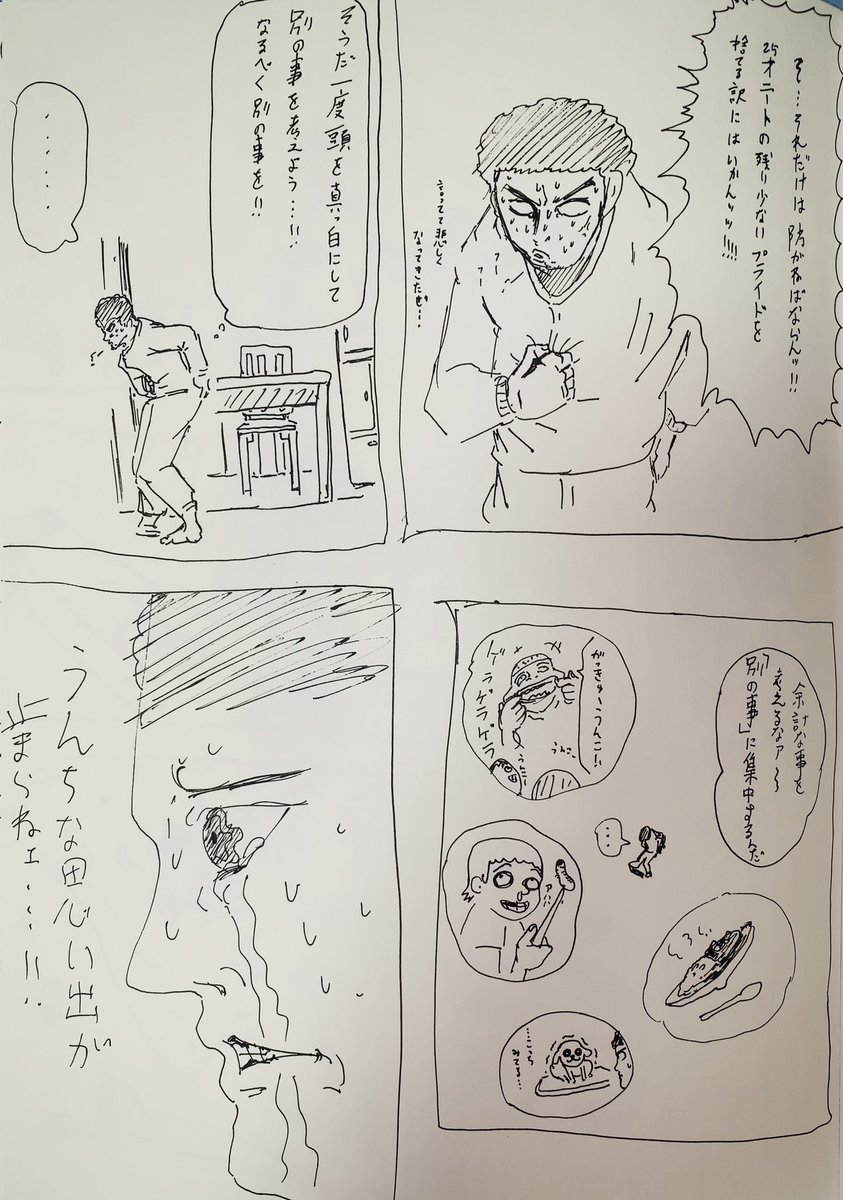 そ…それだけは防がねばならんッ!!
25才ニートの残り少ないプライドを
捨てる訳にはいかんッッ!!!!
フー
フー
言ってて悲しく
なってきたぜ…
そうだ一度頭を真っ白にして
別の事を考えよう…!!
なるべく別の事を!!
……
余計な事を
考えるなァ〜〜
「別の事」に集中するんだ
がっきゅ〜うんこ!!
ゲラゲラゲラ
うんこ〜
うんこ〜
…
アハハ
…こっち
みてる…
うんちな思い出が
止まらねェ……!!